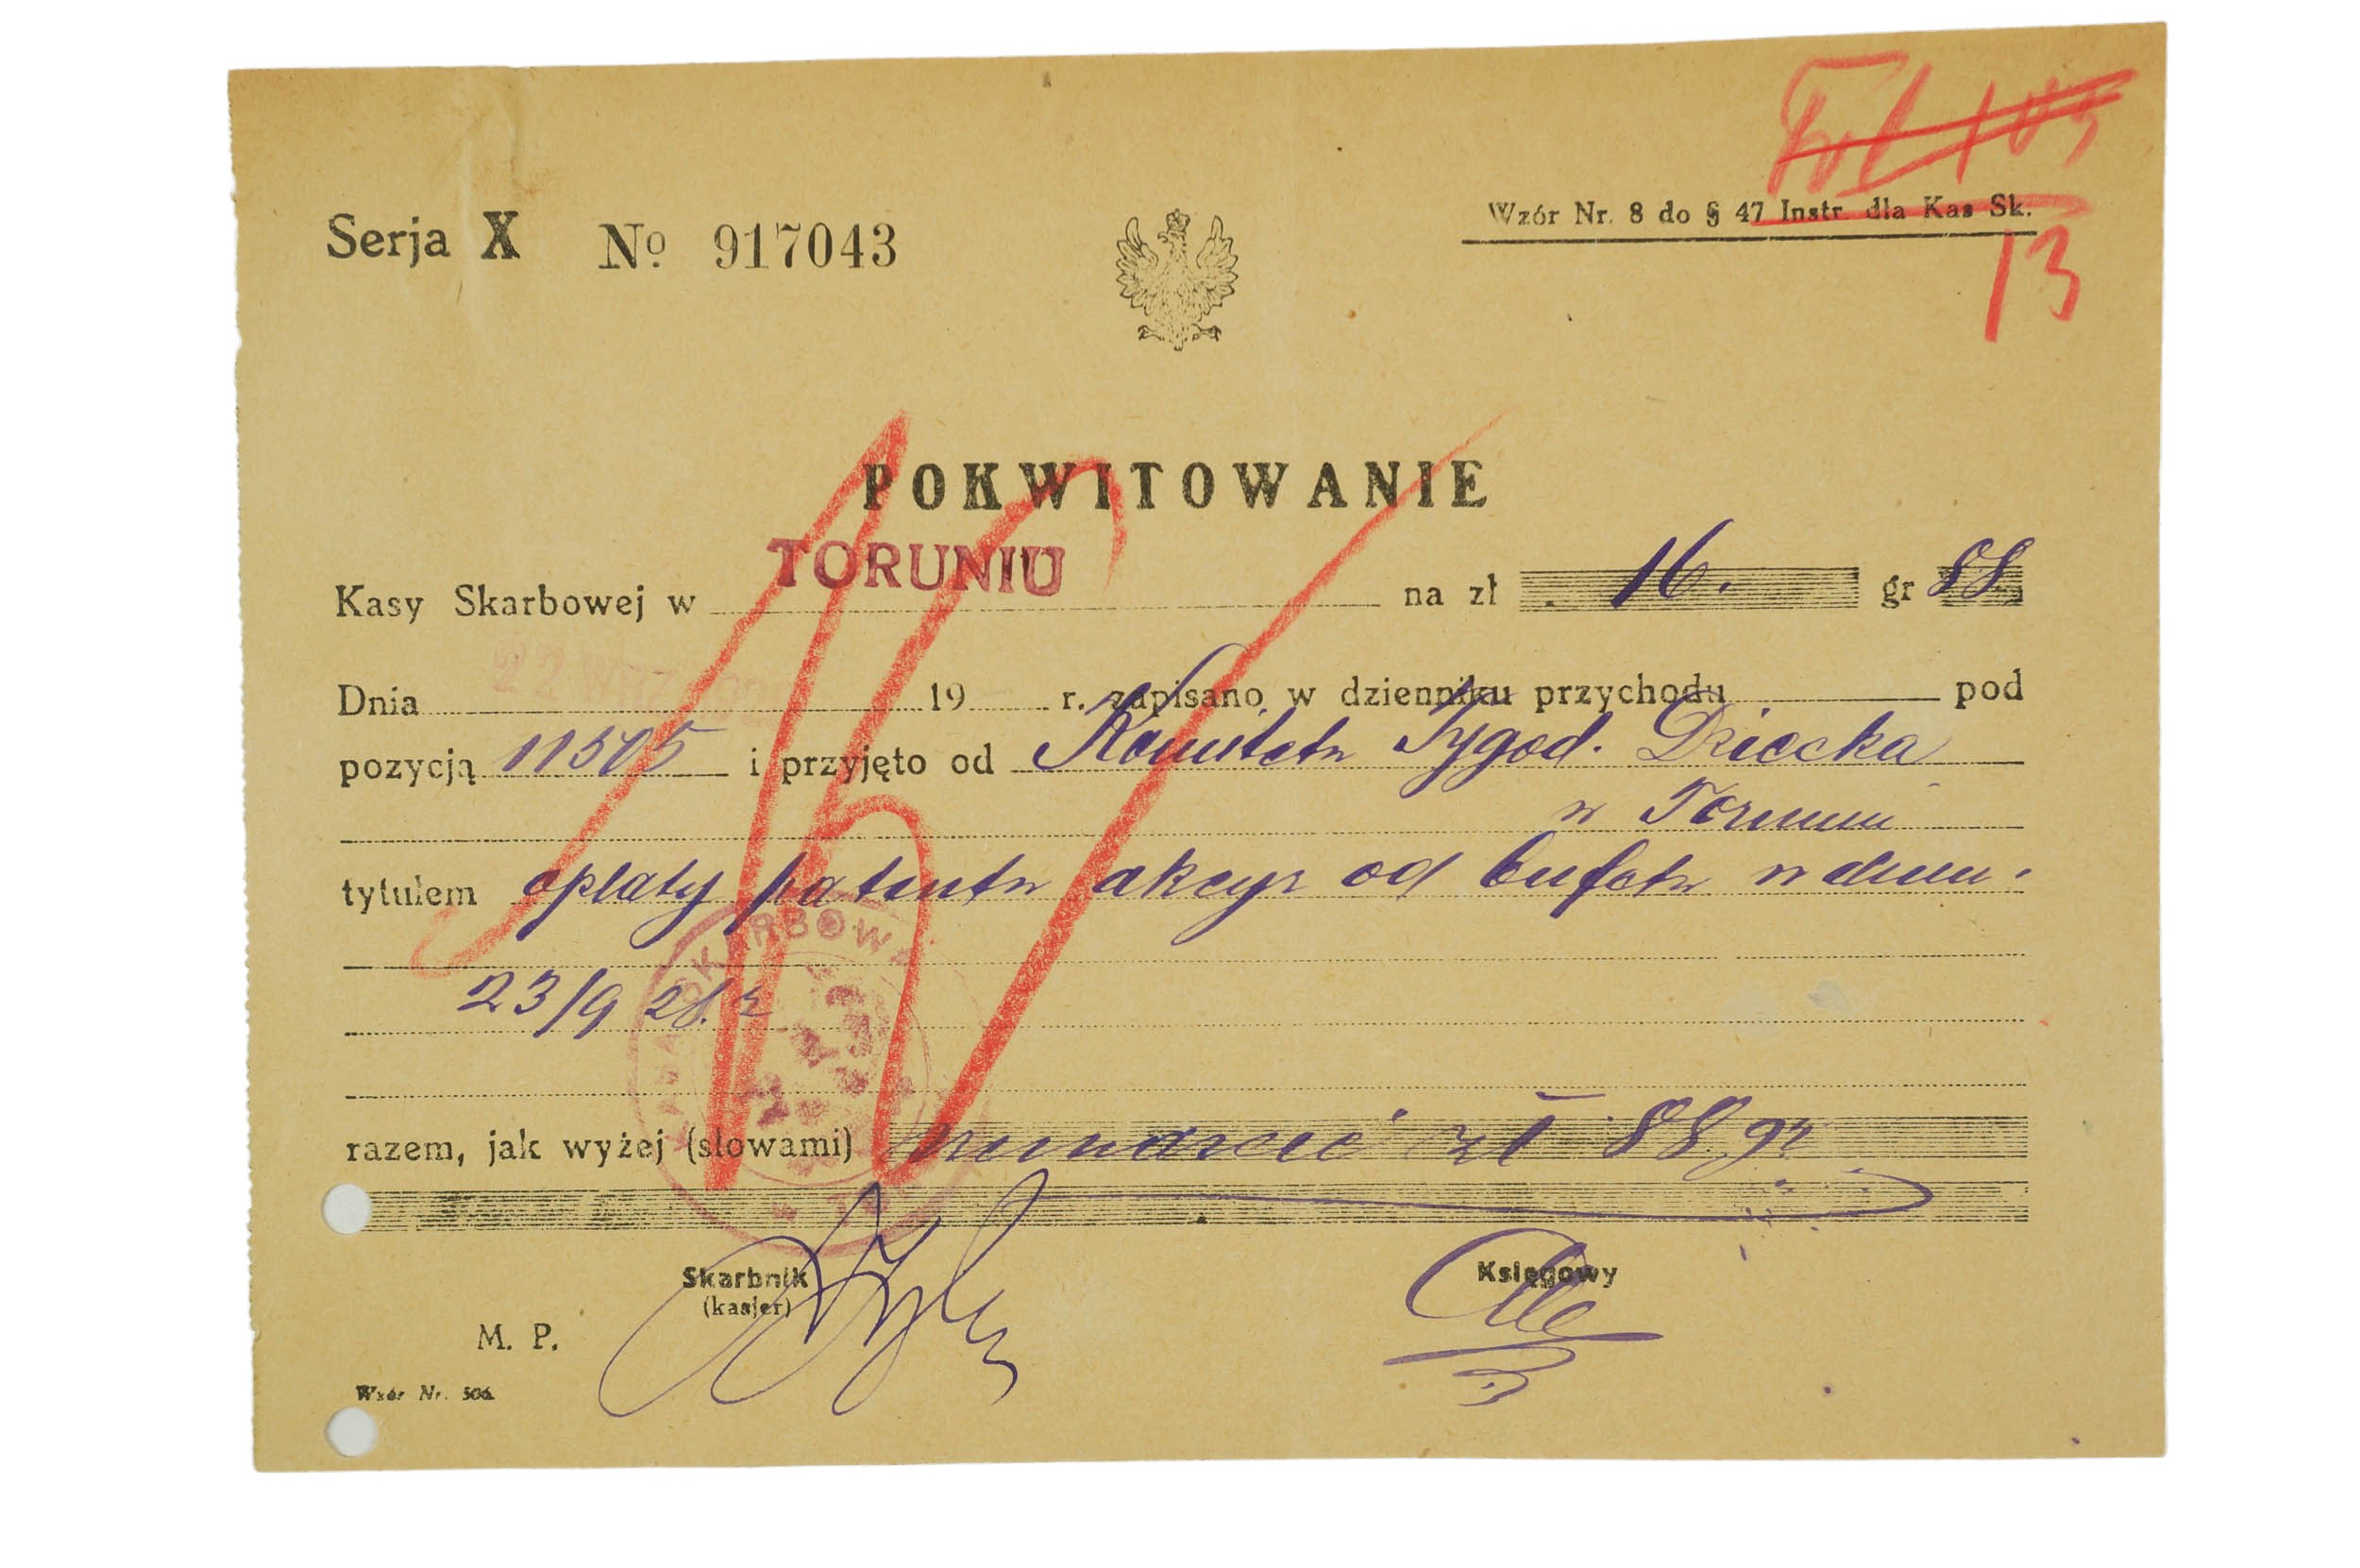 13
Serja X № 917043
Wzór Nr. 8 do § 47 Instr. dla Kas Sk.
POKWITOWANIE
Kasy Skarbowej w TORUNIU na zł 16. gr 88
Dnia 22 WRZ 19 r. zapisano w dzienniku przychodu pod
pozycją 11505 i przyjęto od Komitetu Tygod. Dziecka
w Toruniu
tytułem opłaty patentu akcyz od bufetu w dniu
23/9 28. r
razem, jak wyżej (słowami) szesnaście zł 88 gr
Skarbnik
(kasjer)
Księgowy
M. P.
Wzór Nr. 506